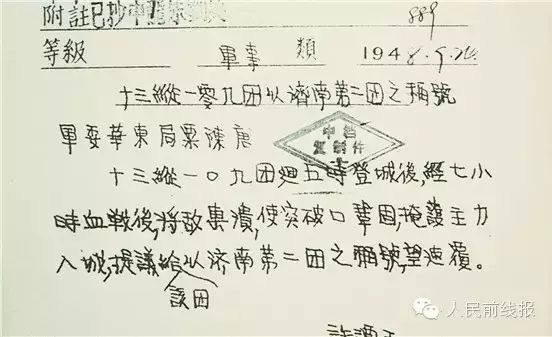 附註已抄中 889
等級 軍事類 1948.9.
十三縱一零九团以濟南第二团之稱號
軍委華東局粟陳唐
中档
复制件
十三縱一〇九团廻五時登城後,經七小
時血戰後,將敵擊潰,使突破口鞏固,掩護主力
入城,提議給以济南第二团之稱號,望速覆。
該团
許譚
人民前线报